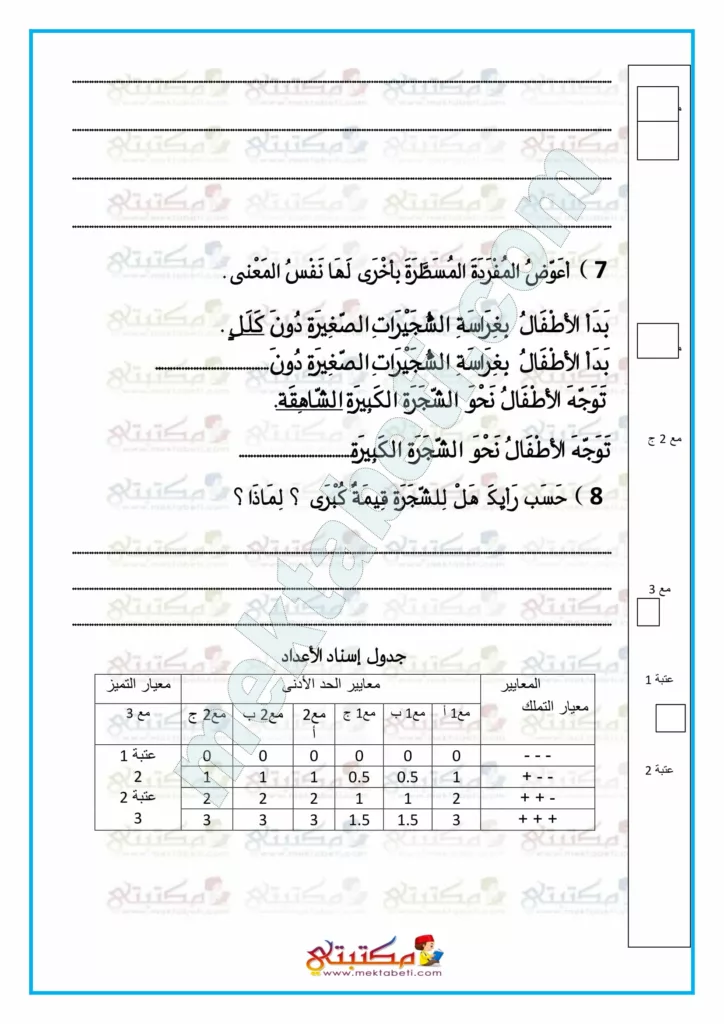 7 ) أعَوِّضُ المُفْرَدَةَ المُسَطَّرَةَ بِأخْرَى لَهَا نَفْسُ المَعْنى .
بَدَأ الأطْفَالُ بِغِرَاسَةِ الشُّجَيْرَاتِ الصَّغِيرَةِ دُونَ كَلَلٍ .
بَدَأ الأطْفَالُ بِغِرَاسَةِ الشُّجَيْرَاتِ الصَّغِيرَةِ دُونَ......................................
تَوَجَّهَ الأطْفَالُ نَحْوَ الشَّجَرَةِ الكَبِيرَةِ الشَّاهِقَةِ.
مع 2 ج
تَوَجَّهَ الأطْفَالُ نَحْوَ الشَّجَرَةِ الكَبِيرَةِ......................................
8 ) حَسَب رَأيِكَ هَلْ لِلشَّجَرَةِ قِيمَةٌ كُبْرَى ؟ لِمَاذَا ؟
مع 3
جدول إسناد الأعداد
عتبة 1
المعايير معايير الحد الأدنى معيار التميز
معيار التملك
مع1 أ مع1 ب مع1 ج مع2 أ مع2 ب مع2 ج مع 3
- - - 0 0 0 0 0 0 عتبة 1
+ - - 1 0.5 0.5 1 1 1 2
+ + - 2 1 1 2 2 2 عتبة 2
+ + + 3 1.5 1.5 3 3 3 3
عتبة 2
مكتبتي
www.mektabeti.com
mektabeti.com